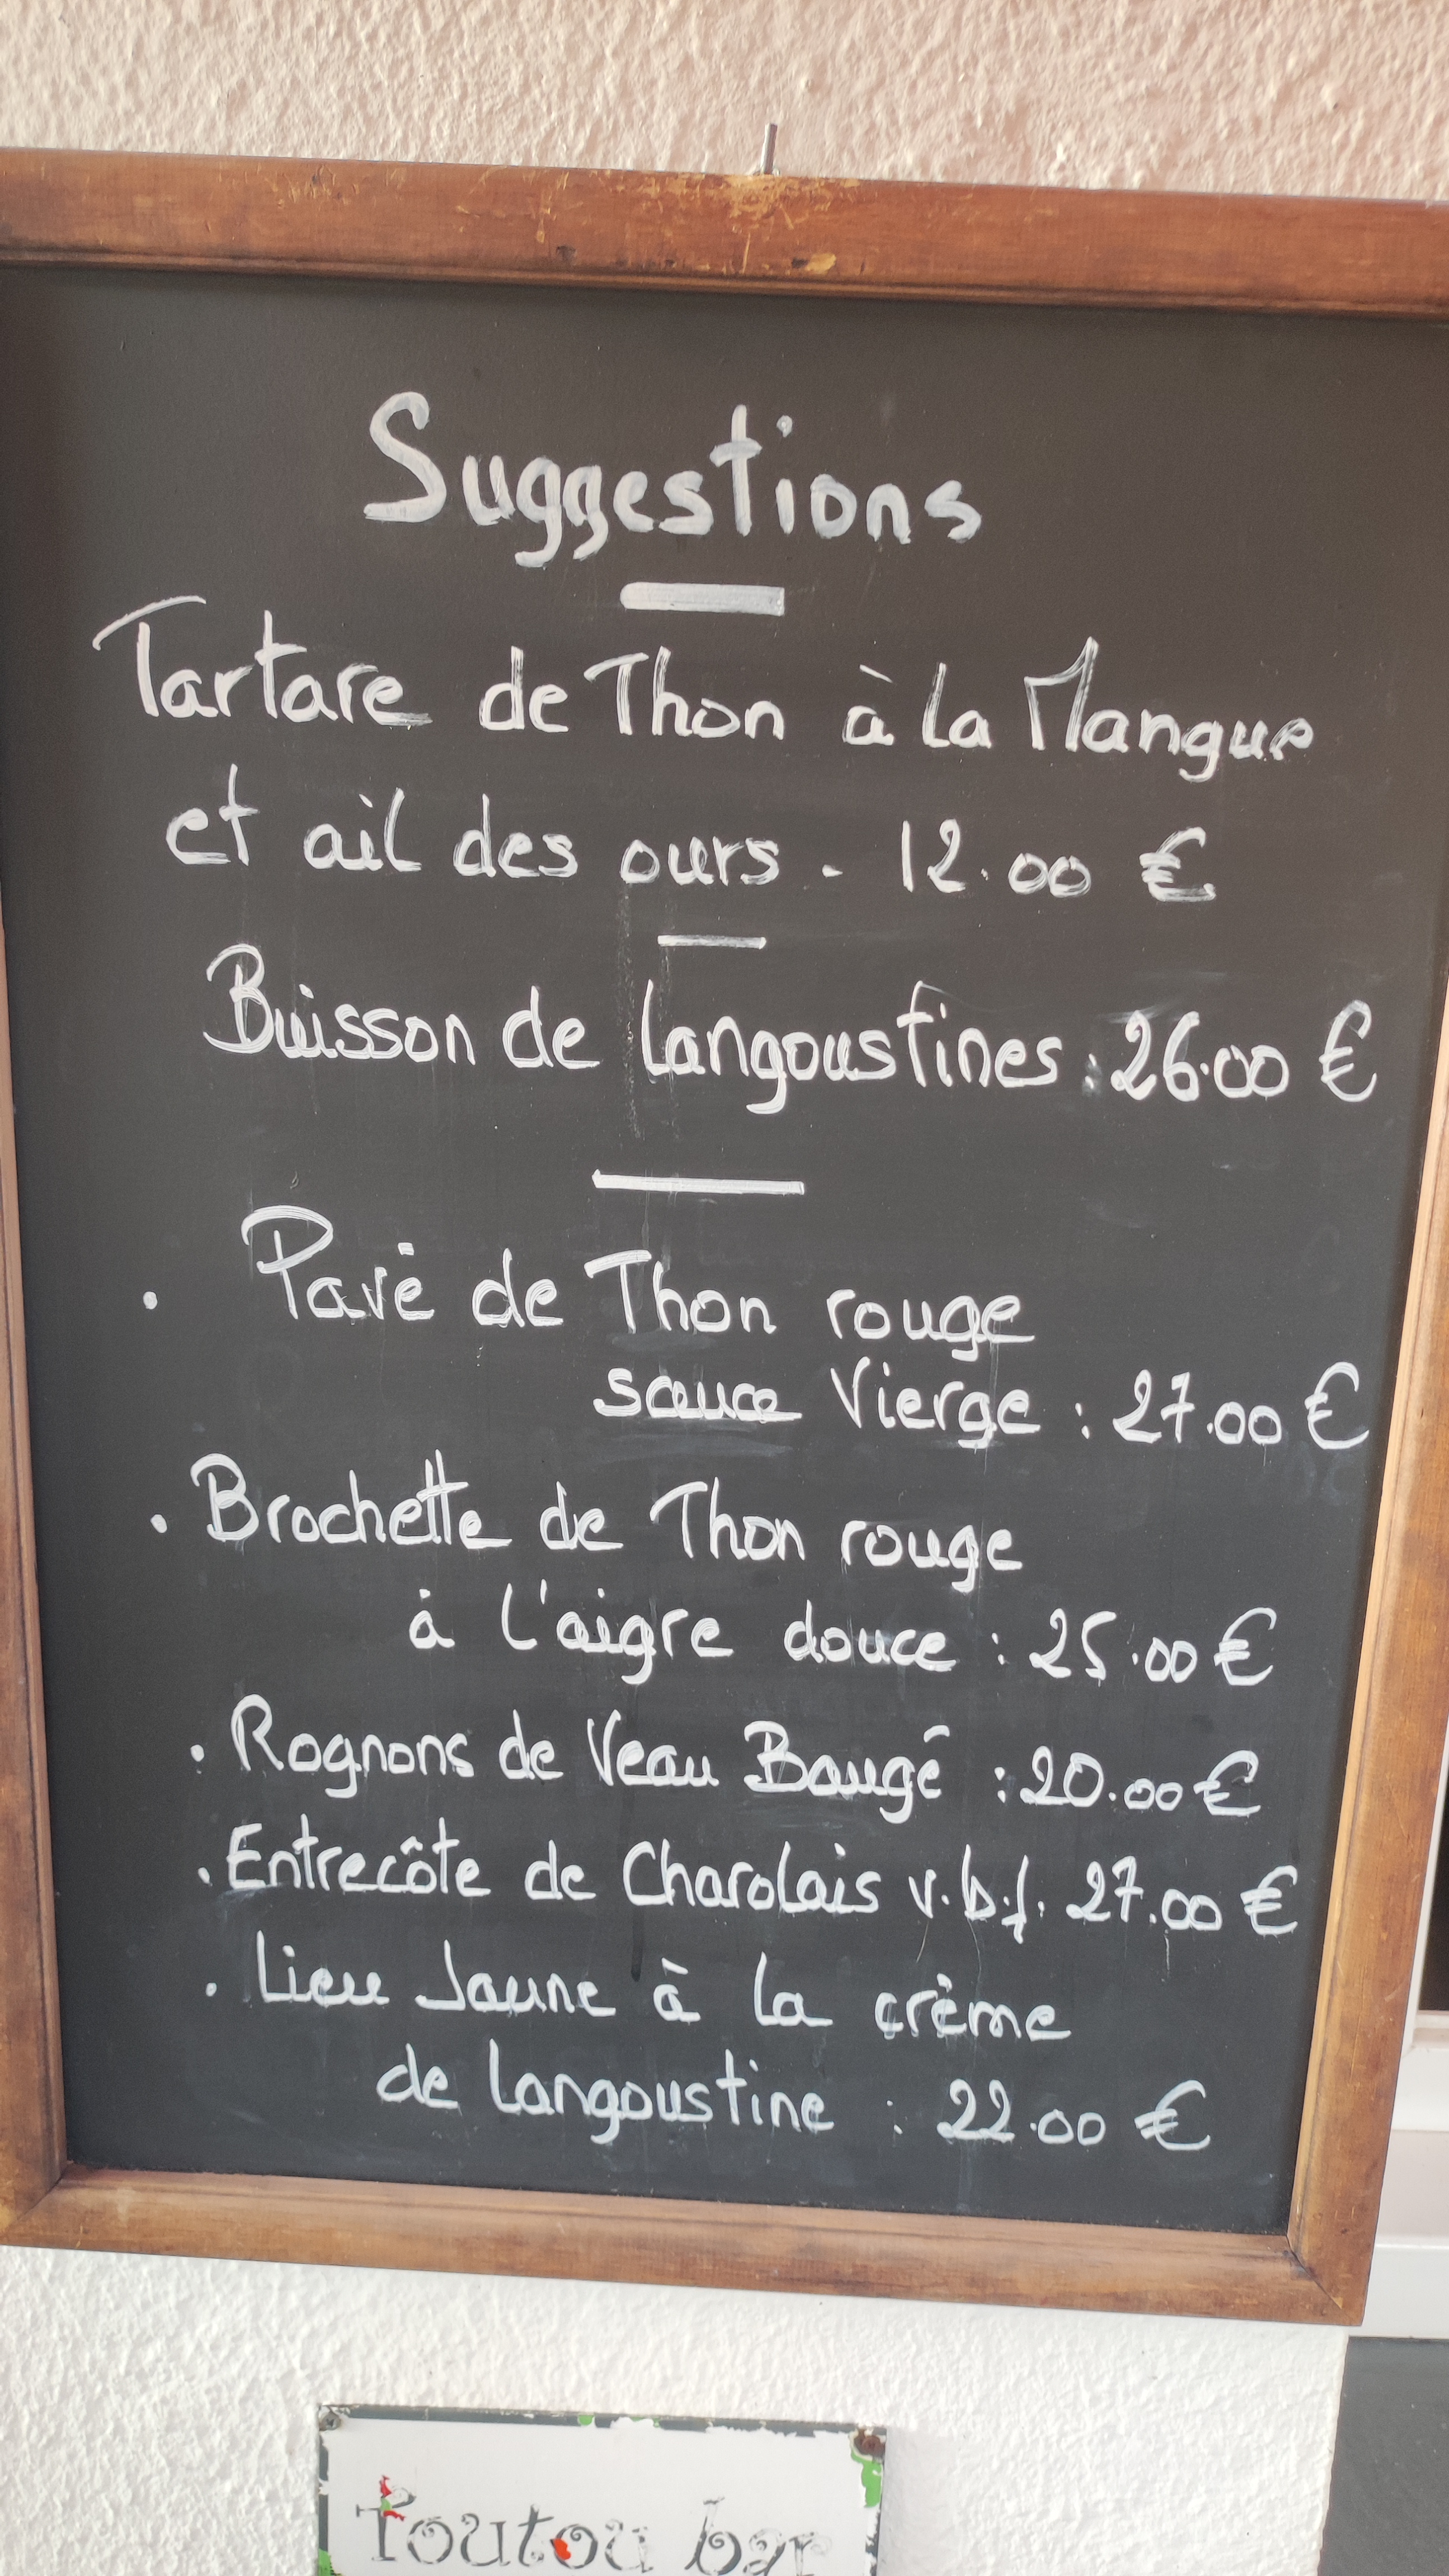 Suggestions
Tartare de Thon à la Mangue
et ail des ours - 12.00 €
Buisson de Langoustines : 26.00 €
. Pavé de Thon rouge
sauce Vierge : 27.00 €
. Brochette de Thon rouge
à l'aigre douce : 25.00 €
. Rognons de Veau Baugé : 20.00 €
. Entrecôte de Charolais v.b.f. 27.00 €
. Lieu Jaune à la crème
de Langoustine : 22.00 €
Toutou bar